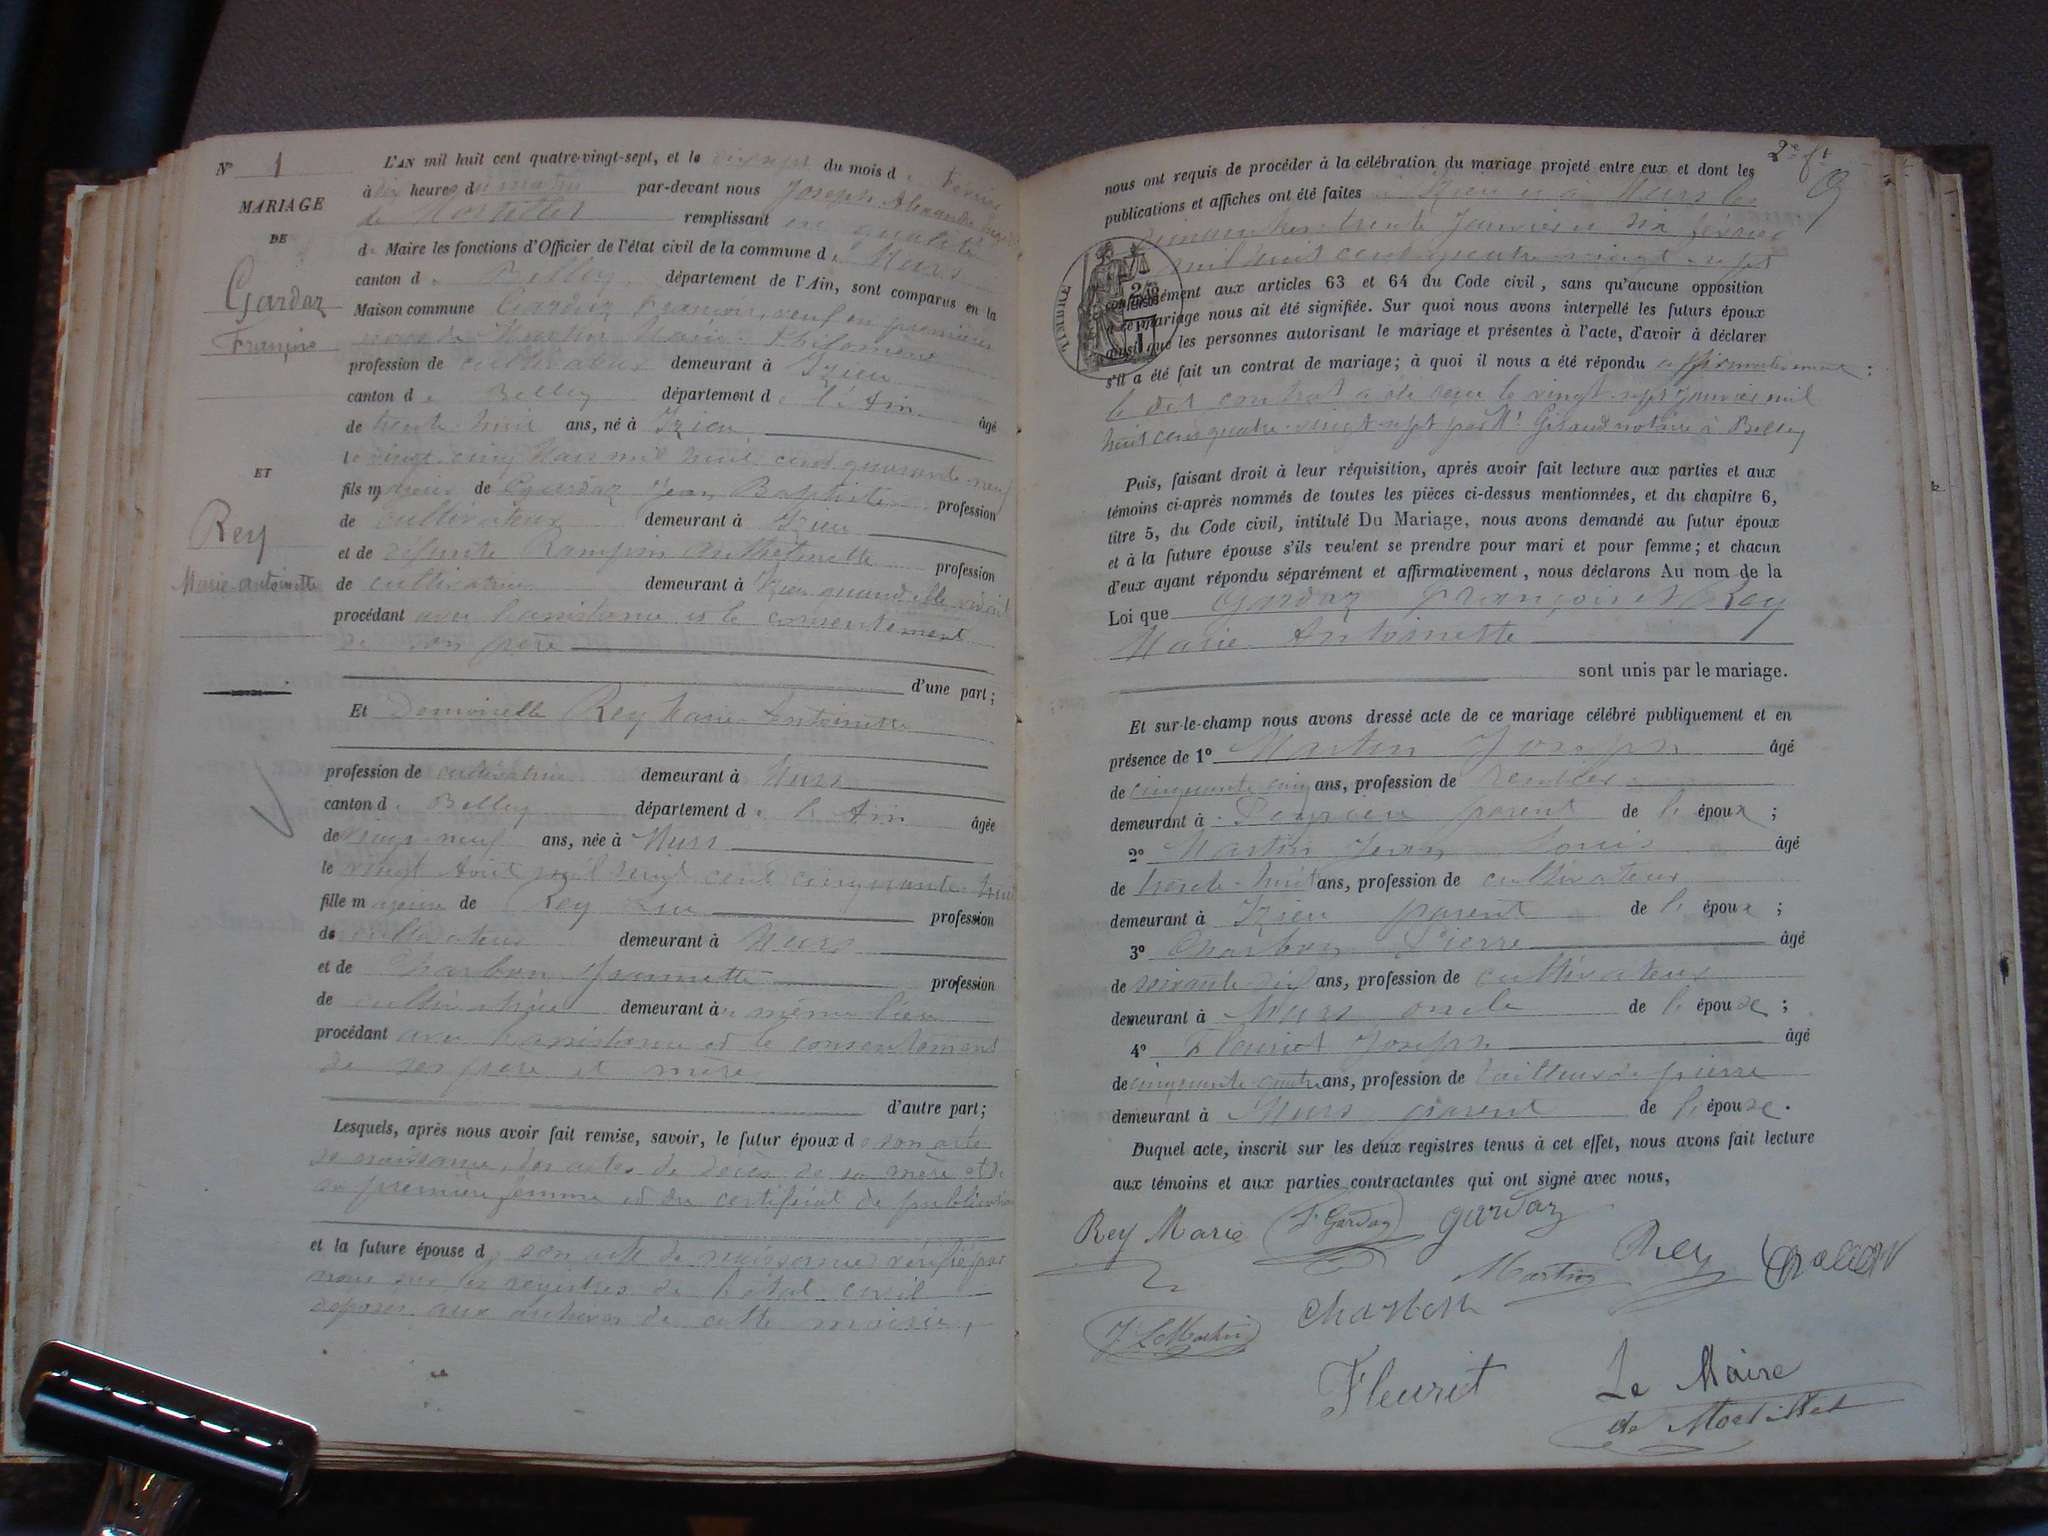 N° 1
MARIAGE
DE
Gardaz
François
ET
Rey
Marie-antoinette
L'AN mil huit cent quatre-vingt-sept, et le dix sept du mois de Février
à dix heures du matin par-devant nous Joseph Alexandre
de Mortillet remplissant en qualité
de Maire les fonctions d'Officier de l'état civil de la commune de Murs
canton de Belley département de l'Ain, sont comparus en la
Maison commune Gardaz François, veuf en premières
noces de Martin Marie Philomène
profession de cultivateur demeurant à Izieu
canton de Belley département de l'Ain âgé
de trente-huit ans, né à Izieu
le vingt cinq Mars mil huit cent quarante-neuf
fils majeur de Gardaz Jean Baptiste profession
de cultivateur demeurant à Izieu
et de défunte Rampin Anthelmette profession
de cultivatrice demeurant à Izieu quand elle vivait
procédant avec l'assistance et le consentement
de son père
d'une part;
Et Demoiselle Rey Marie-Antoinette
profession de cultivatrice demeurant à Murs
canton de Belley département de l'Ain âgée
de vingt-neuf ans, née à Murs
le vingt Août mil huit cent cinquante-huit
fille majeure de Rey Luc profession
de cultivateur demeurant à Murs
et de Charbon Jeannette profession
de cultivatrice demeurant à même lieu
procédant avec l'assistance et le consentement
de ses père et mère
d'autre part;
Lesquels, après nous avoir fait remise, savoir, le futur époux de son acte
de naissance, des actes de décès de sa mère et de
sa première femme et du certificat de publication
et la future épouse de son acte de naissance vérifié par
nous sur les registres de l'état civil
déposés aux archives de cette mairie,
2e ft
nous ont requis de procéder à la célébration du mariage projeté entre eux et dont les
publications et affiches ont été faites à Izieu et à Murs les
dimanches trente Janvier et six février
mil huit cent quatre-vingt-sept
conformément aux articles 63 et 64 du Code civil, sans qu'aucune opposition
à ce mariage nous ait été signifiée. Sur quoi nous avons interpellé les futurs époux
ainsi que les personnes autorisant le mariage et présentes à l'acte, d'avoir à déclarer
s'il a été fait un contrat de mariage; à quoi il nous a été répondu affirmativement:
TIMBRE
le dit contrat a été reçu le vingt-sept janvier mil
huit cent quatre-vingt-sept par Me Giraud notaire à Belley
Puis, faisant droit à leur réquisition, après avoir fait lecture aux parties et aux
témoins ci-après nommés de toutes les pièces ci-dessus mentionnées, et du chapitre 6,
titre 5, du Code civil, intitulé Du Mariage, nous avons demandé au futur époux
et à la future épouse s'ils veulent se prendre pour mari et pour femme; et chacun
d'eux ayant répondu séparément et affirmativement, nous déclarons Au nom de la
Loi que Gardaz François et Rey
Marie Antoinette
sont unis par le mariage.
Et sur-le-champ nous avons dressé acte de ce mariage célébré publiquement et en
présence de 1° Martin Joseph âgé
de cinquante cinq ans, profession de rentier
demeurant à Peyrieu parent de l'époux;
2° Martin Jean Louis âgé
de trente-huit ans, profession de cultivateur
demeurant à Izieu parent de l'époux;
3° Charbon Pierre âgé
de soixante dix ans, profession de cultivateur
demeurant à Murs oncle de l'épouse;
4° Fleuriet Joseph âgé
de cinquante quatre ans, profession de tailleur de pierre
demeurant à Murs parent de l'épouse.
Duquel acte, inscrit sur les deux registres tenus à cet effet, nous avons fait lecture
aux témoins et aux parties contractantes qui ont signé avec nous,
Rey Marie F. Gardaz gardaz
Martin Rey
J L Martin Charbon
Fleuriet Le Maire
de Mortillet